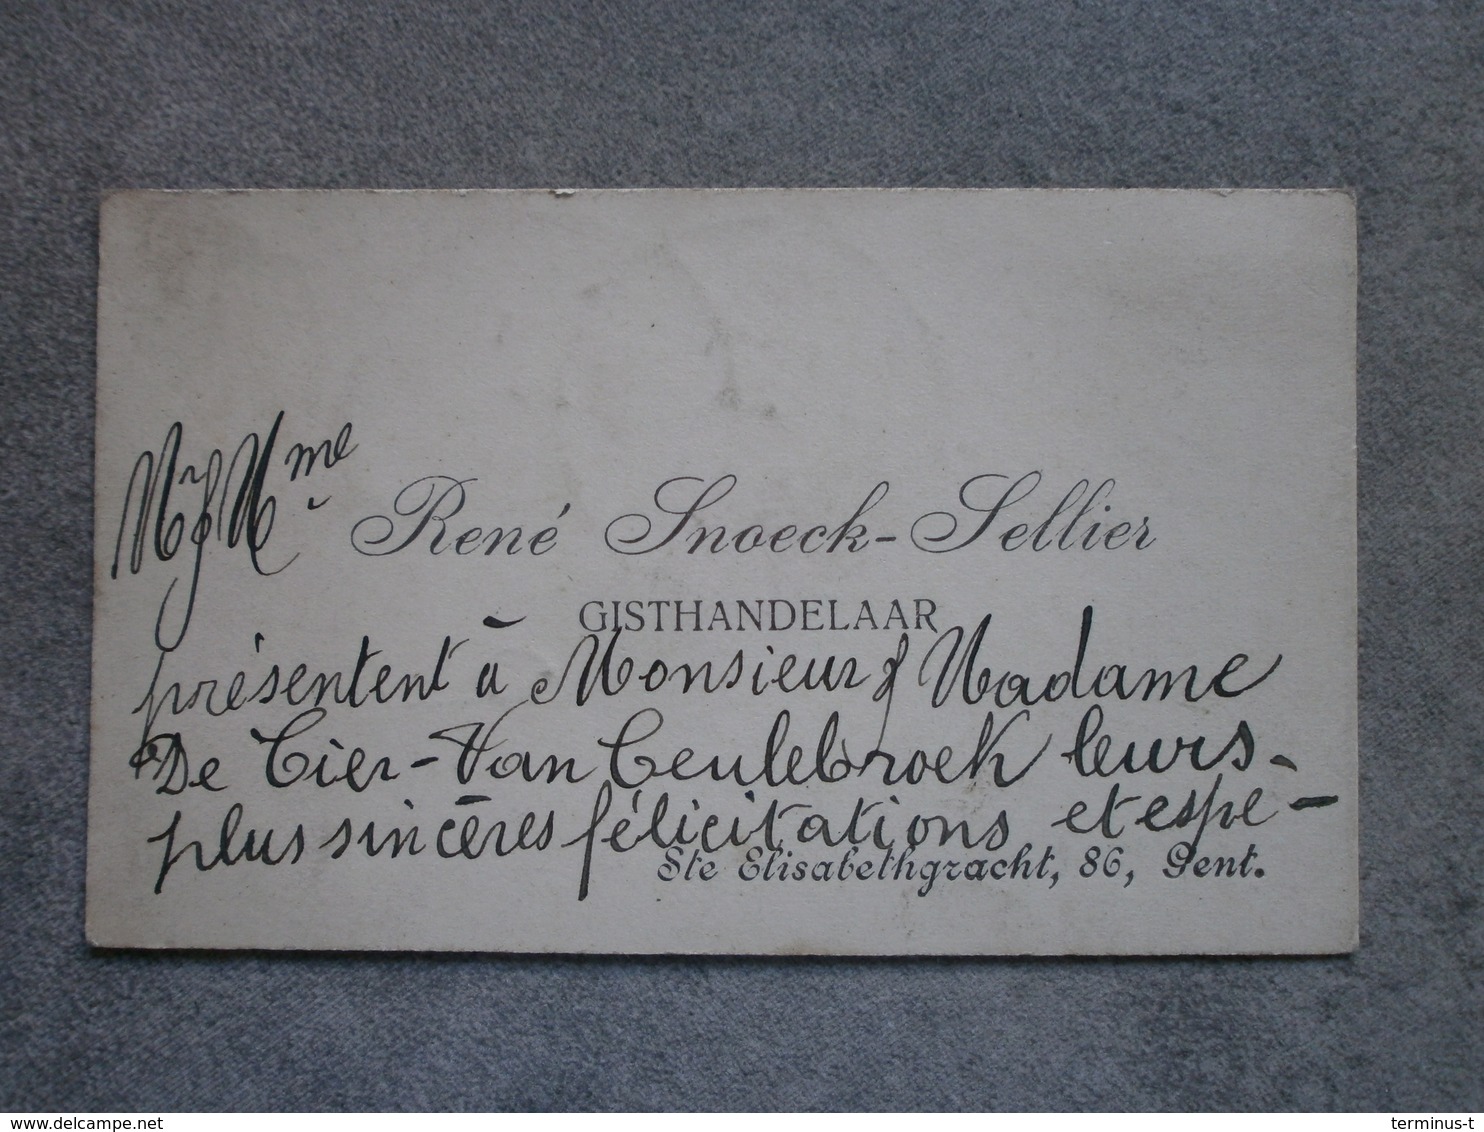 Mr & Mme René Snoeck-Sellier
GISTHANDELAAR
présentent à Monsieur & Madame
De Cier-Van Ceulebroek leurs
plus sincères félicitations et espe-
Ste Elisabethgracht, 86, Gent.
www.delcampe.net
terminus-t